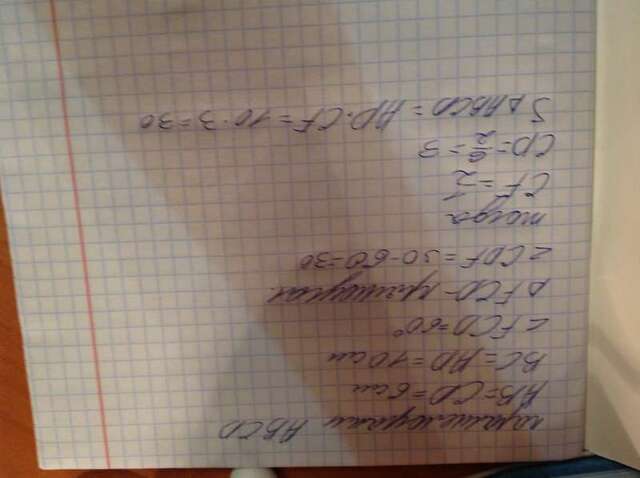 параллелограмм ABCD
AB=CD=6см
BC=AD=10см
∠FCD=60°
△FCD-прямоугол.
∠CDF=90-60=30
тогда
CF=1/2
CD=6/2=3
S△ABCD=AD·CF=10·3=30